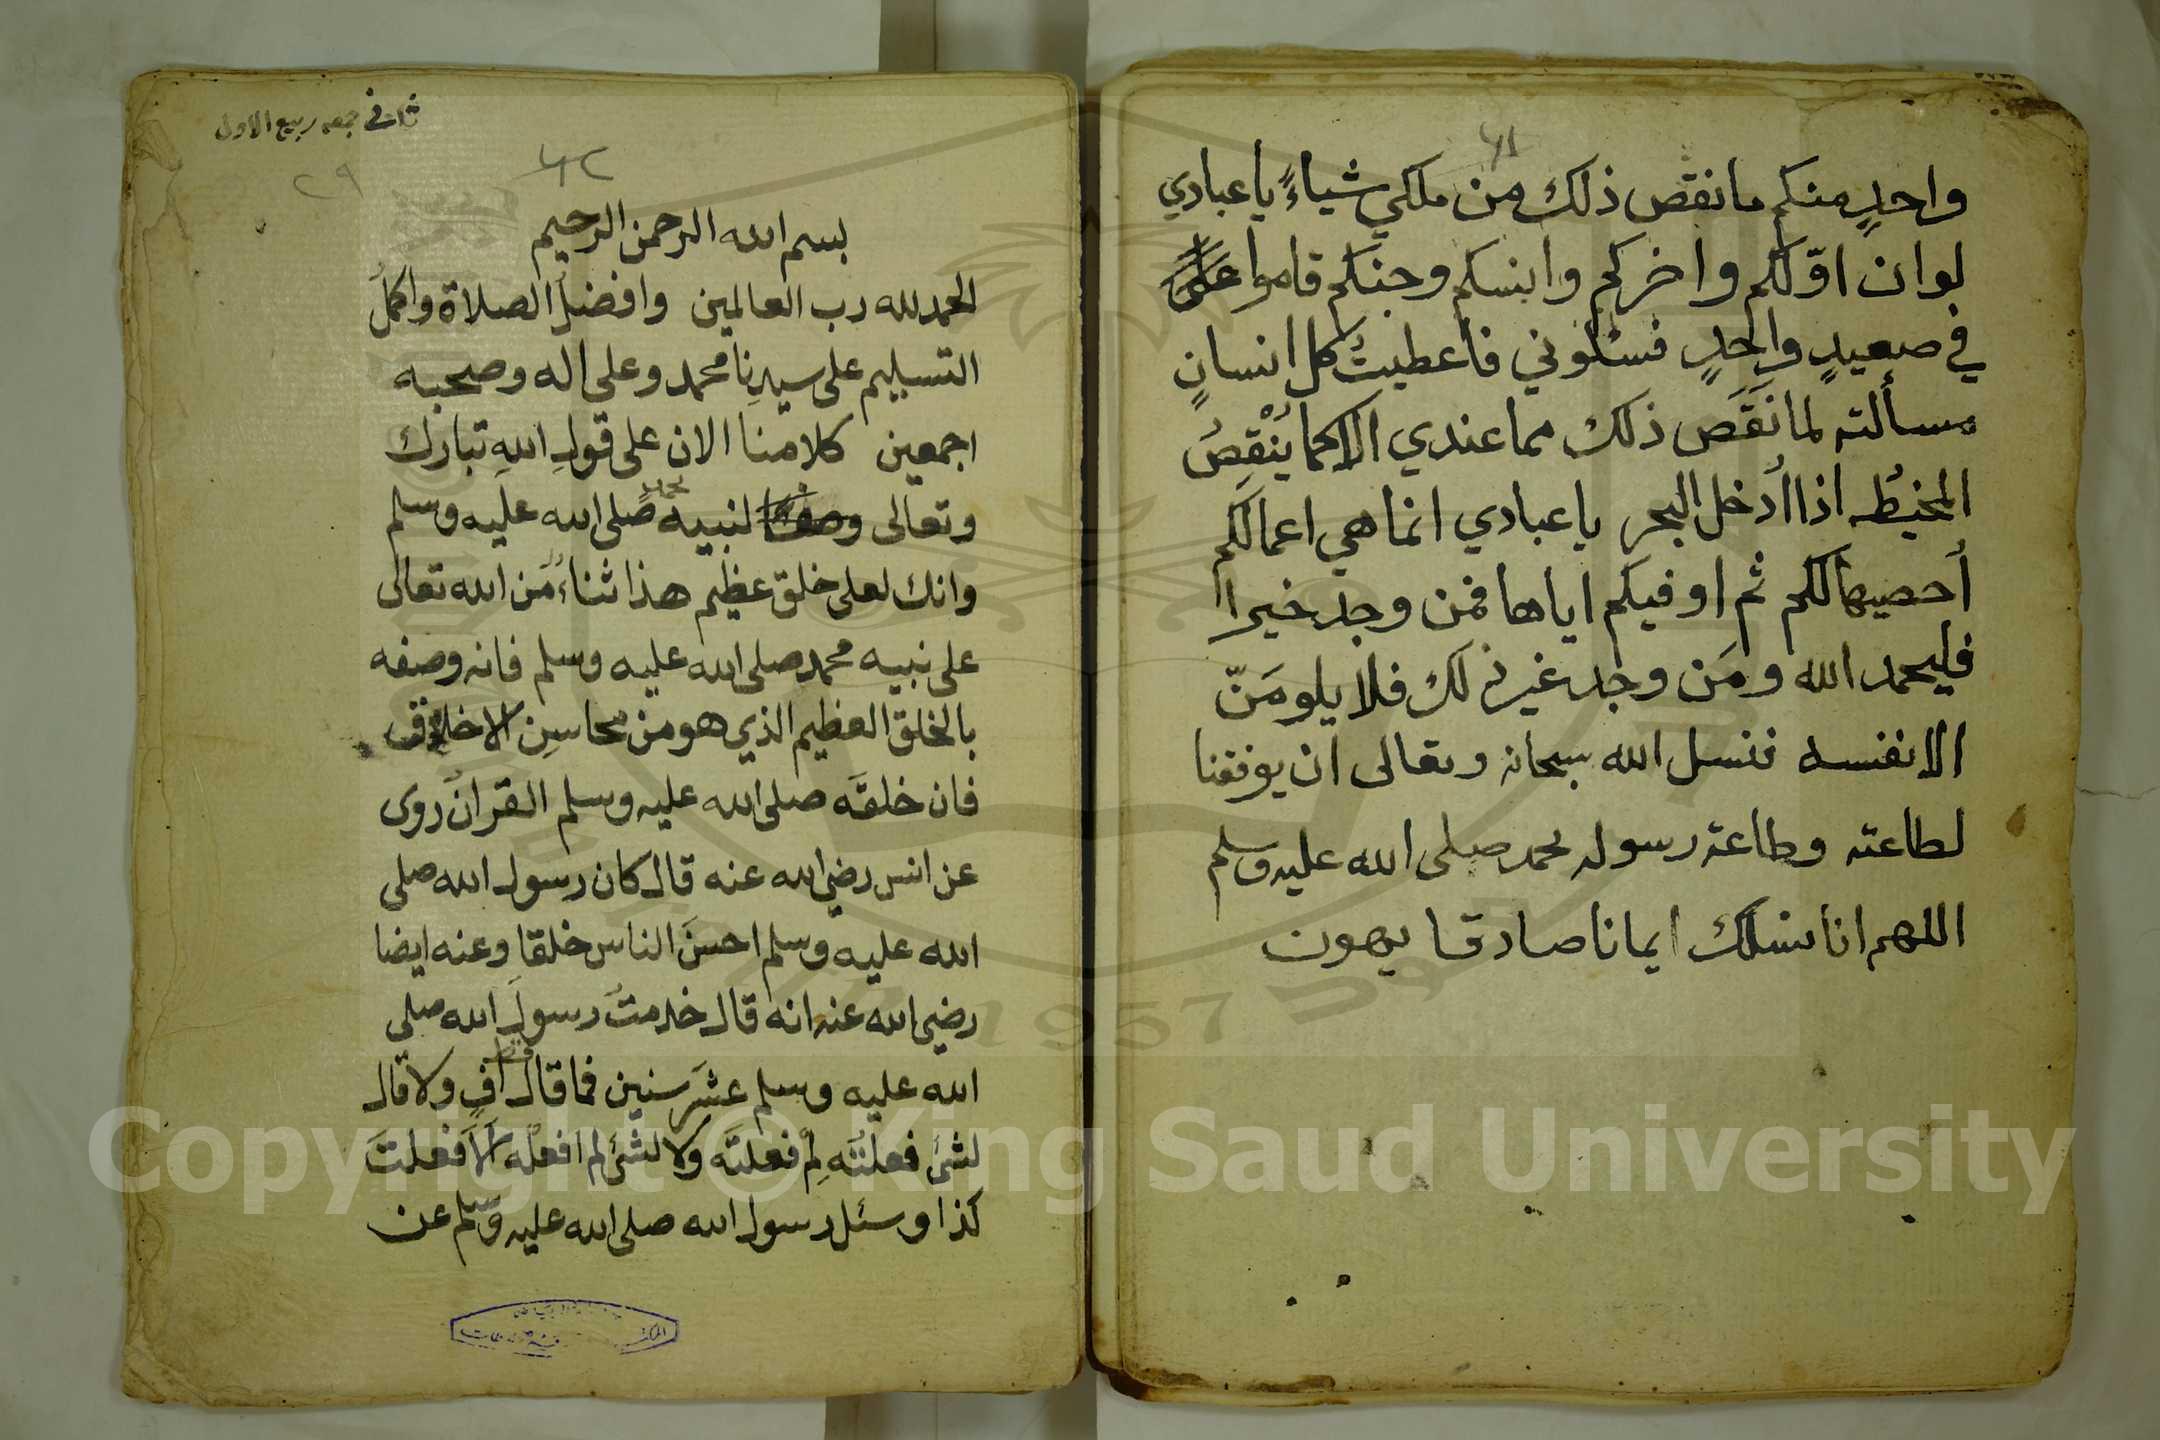 ٤١
واحدٍ منكم ما نقص ذلك من ملكي شياءً يا عبادي
لو ان اوّلكم واخركم وانسكم وجنكم قاموا
في صعيدٍ واحدٍ فسئلوني فاعطيتُ كل انسانٍ
مسألته لما نَقَص ذلك مما عندي الا كما يُنْقِصُ
المخيطُ اذا اُدخل البحر يا عبادي انما هي اعمالكم
اُحصيها لكم ثم اوفيكم اياها فمن وجد خيرا
فليحمد الله ومَن وجد غير ذلك فلا يلومَنّ
الا نفسه فنسل الله سبحانه وتعالى ان يوفقنا
لطاعته وطاعة رسوله محمد صلى الله عليه وسلم
اللهم انا نسلك ايمانا صادقا يهون
في جمعه ربيع الاول
٤٢
٢٩
بسم الله الرحمن الرحيم
الحمد لله رب العالمين وافضلُ الصلاة واكملُ
التسليم على سيدِنا محمد وعلى اله وصحبه
اجمعين كلامنا الان على قولِ اللهِ تبارك
وتعالى لنبيه محمد صلى الله عليه وسلم
وانك لعلى خلق عظيم هذا ثناءُ من الله تعالى
على نبيه محمد صلى الله عليه وسلم فانه وصفه
بالخلق العظيم الذي هو من محاسِن الاخلاق
فان خلقَه صلى الله عليه وسلم القرانُ روى
عن انس رضي الله عنه قال كان رسول الله صلى
الله عليه وسلم احسنَ الناس خلقا وعنه ايضا
رضي الله عنه انه قال خدمتُ رسولَ الله صلى
الله عليه وسلم عشَر سنين فما قال اُفٍ قط ولا قال
لشئَ فعلتُه لِمْ فعلتَه ولا لشئ لم افعلْه اَلاَ فعلتَ
كذا وسئل رسول الله صلى الله عليه وسلم عن
Copyright © King Saud University
1957